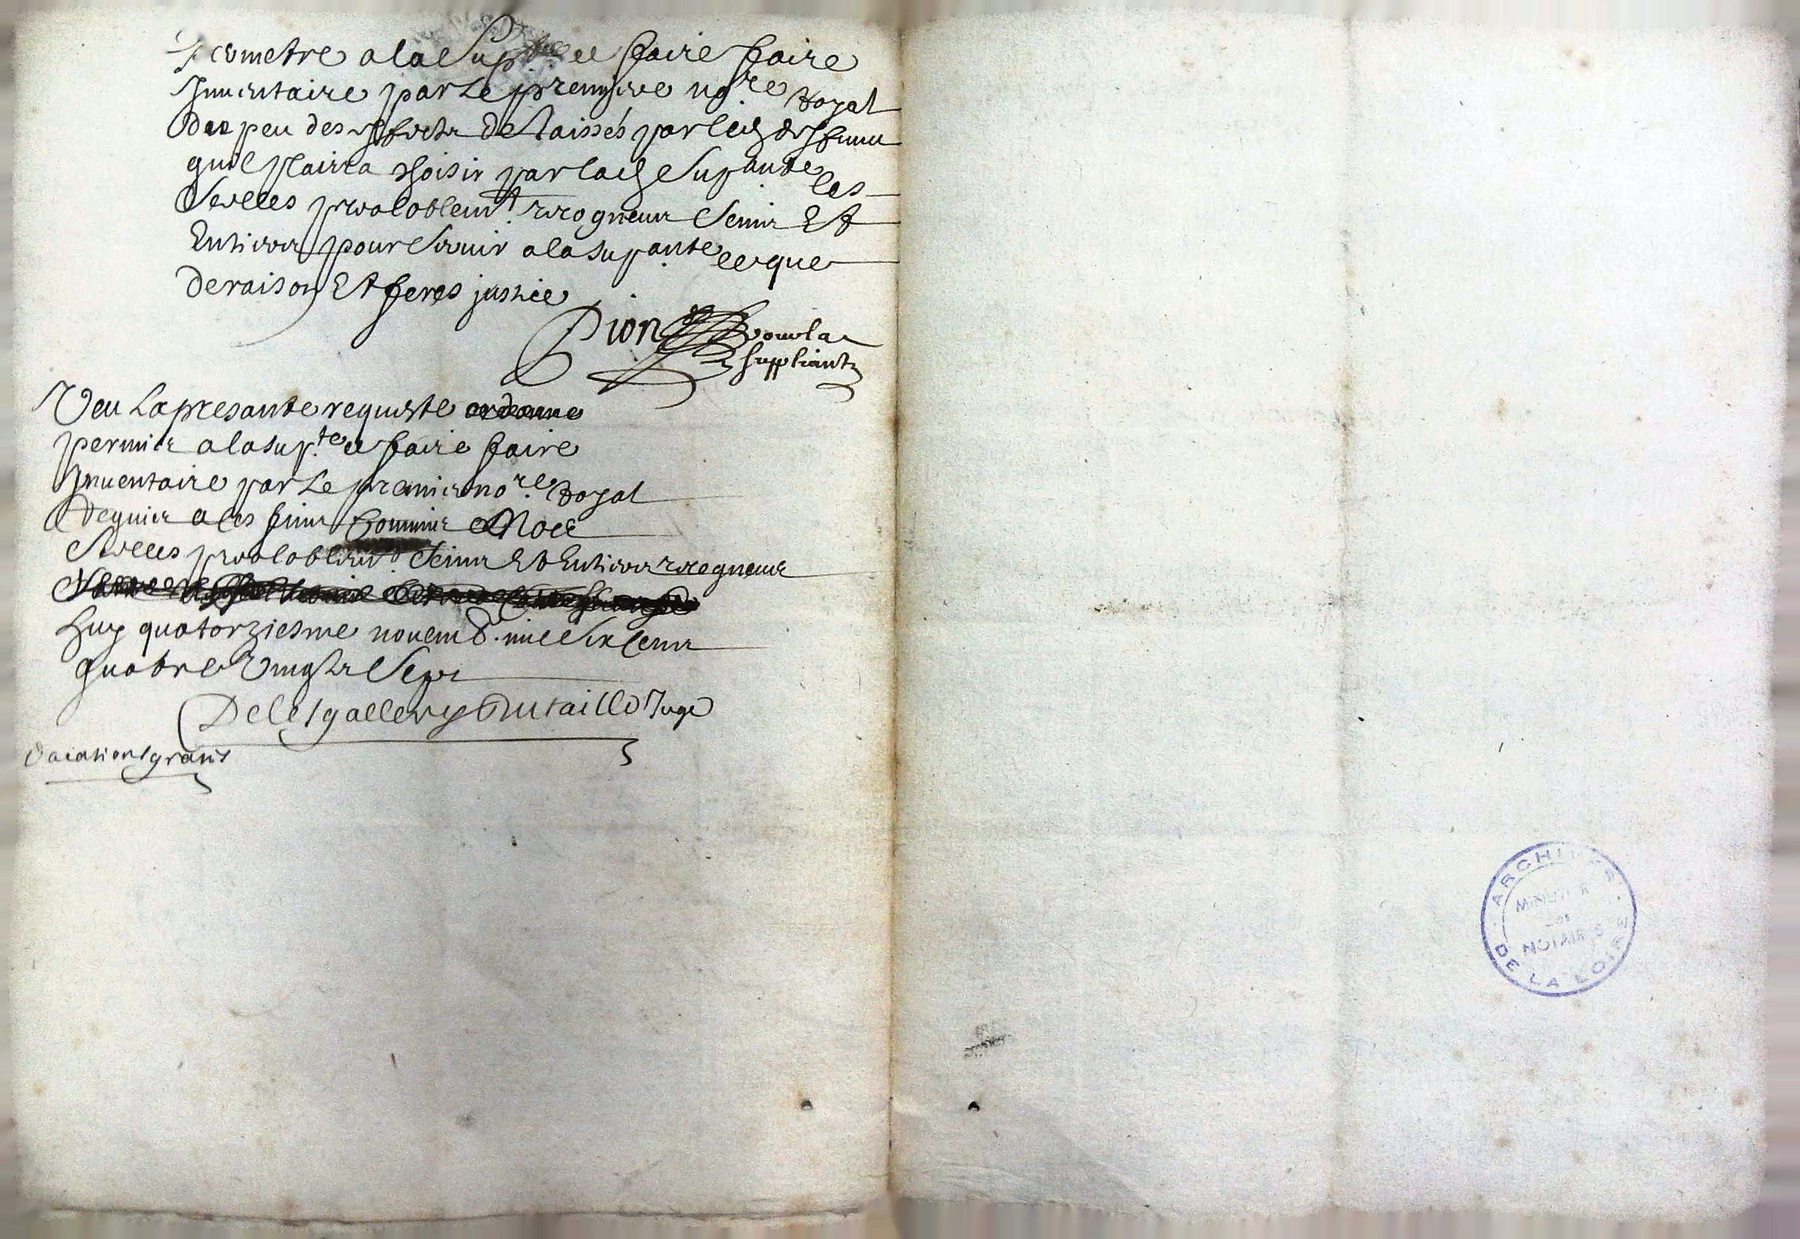 permetre a la Sup.te de faire faire
Inventaire par Le premier no.re Royal
du peu des effects delaissés par led deffunt
quil plaira choisir par lad Supante les
Scelles prealoblemt
Entiers pour servir a la supante ce que
de raison Et feres justice
Dion pour la
suppliante
Veu La presante requeste ordonne
permis a la sup.te de faire faire
Inventaire par Le premier no.re Royal
Requier a ces fins
Scelles prealoblemt Et Entiers
huy quatorziesme novemb. mil Six Cents
quatre Vingts Sept
Delesgallery Dutaillo Juge
Vacations gratis
ARCHIVES DE LA LOIRE
MINUTIER
DES
NOTAIRES